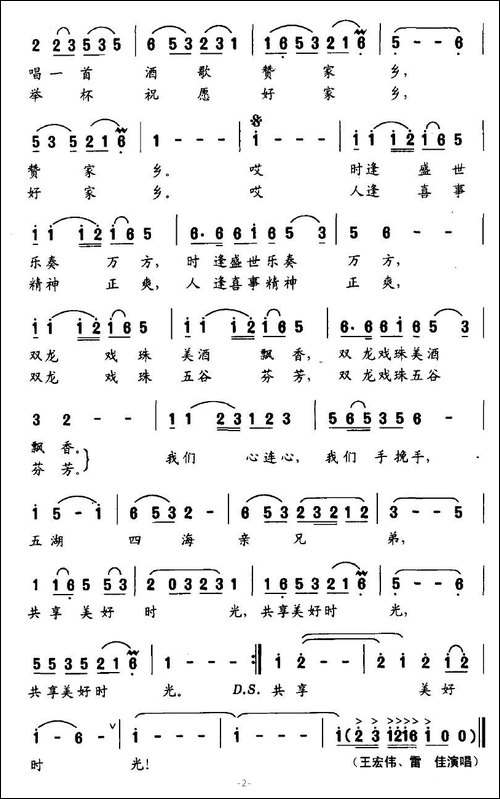 2 23535 | 6 53231 | 1653216 | 5 - - 6 |
唱一首 酒 歌 赞 家 乡,
举 杯 祝 愿 好 家 乡,
5 3 5 216 | 1 - - - | i - - - | i i i2 i65 |
赞 家 乡。 哎 时逢 盛 世
好 家 乡。 哎 人逢 喜 事
i i i i2 i65 | 6· 66i65 3 | 5 6 - - |
乐奏 万 方, 时 逢盛世乐奏 万 方,
精神 正 爽, 人 逢喜事精神 正 爽,
i i i i2 i65 | i i i i2 i65 | 6· 66i65 3 |
双龙 戏 珠 美酒 飘 香, 双 龙戏珠美酒
双龙 戏 珠 五谷 芬 芳, 双 龙戏珠五谷
3 2 - - | 11 23123 | 565356 | 5 - - - |
飘 香。
芬 芳。
我们 心连心, 我们 手挽手,
i 5 - i | 6 532 | 6 5323212 | 3 - - 5 |
五湖 四 海 亲 兄 弟,
1 16 5 53 | 2 03231 | 1653216 | 5 - - 6 |
共享 美好 时 光, 共享美好时 光,
5535216 | 1 - - - :| i - - - | 2 i 2 i2 |
共享美好时 光。 D.S. 共 享 美 好
i - 6 - | i - - - | i - - - | i(2 3 i2i6 i 0 0) |
时 光!
(王宏伟、雷 佳演唱)
-2-